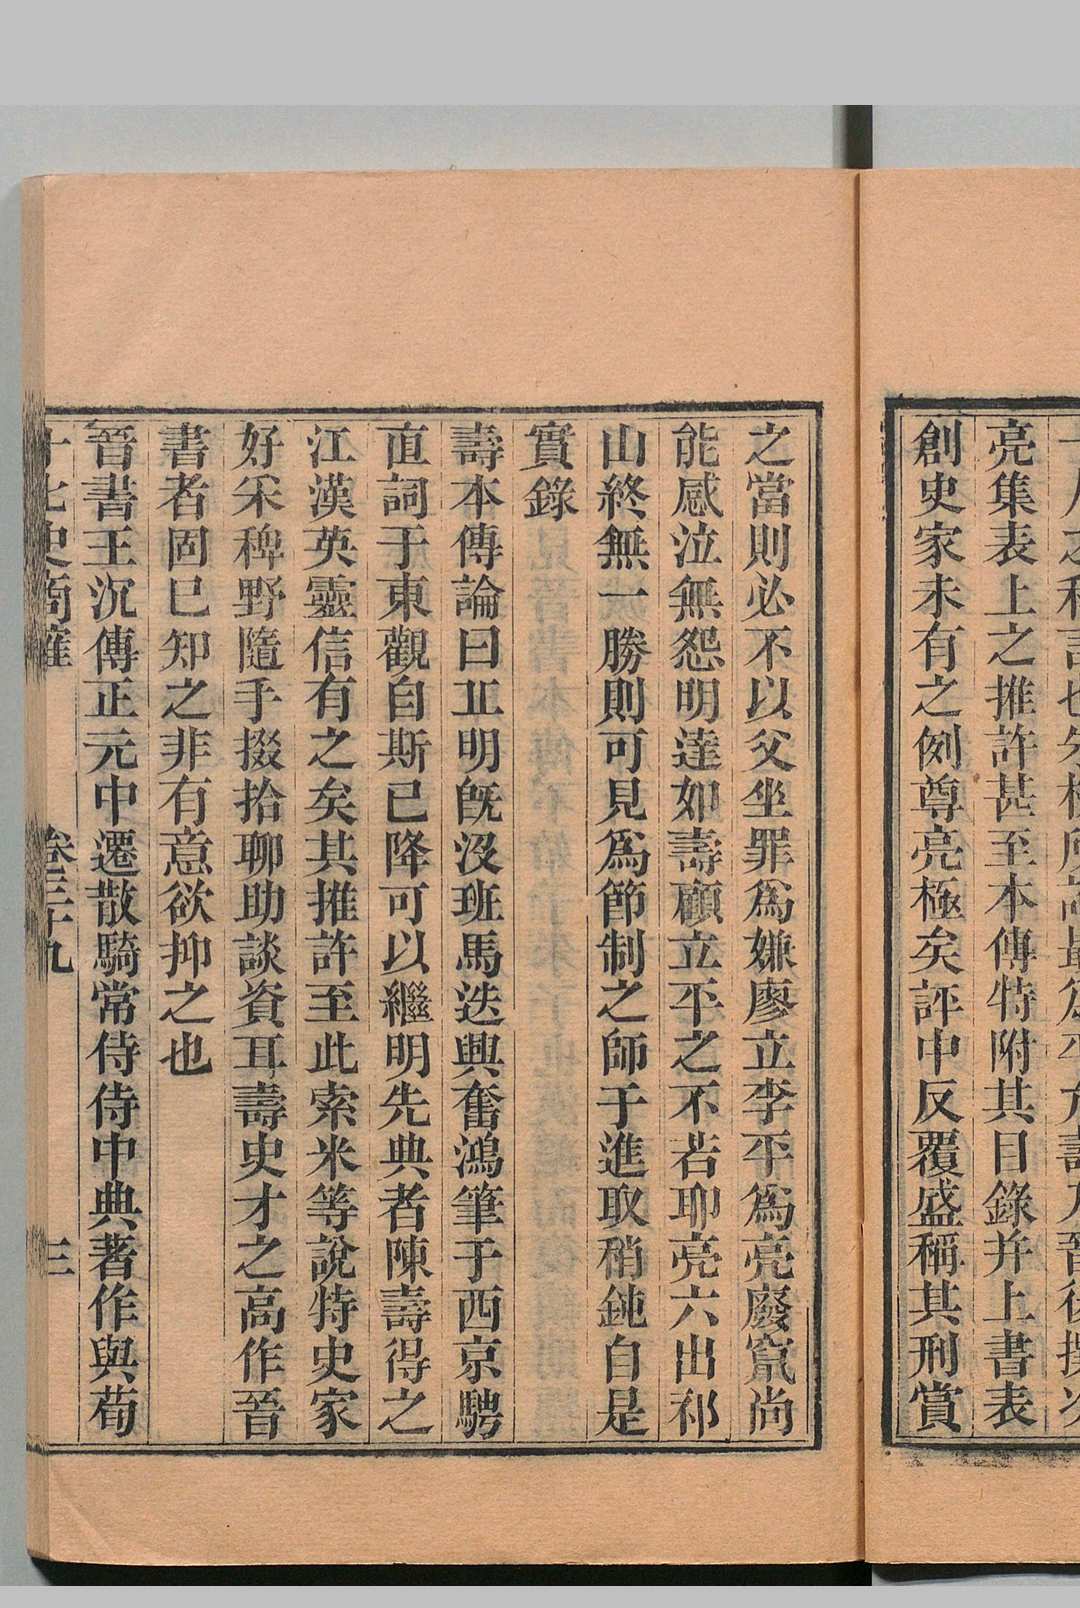 亮集表上之推許甚至本傳特附其目錄并上書表
創史家未有之例尊亮極矣評中反覆盛稱其刑賞
之當則必不以父坐罪爲嫌廖立李平爲亮廢竄尚
能感泣無怨明達如壽顧立平之不若耶亮六出祁
山終無一勝則可見爲節制之師于進取稍鈍自是
實錄
壽本傳論曰丘明旣沒班馬迭興奮鴻筆于西京騁
直詞于東觀自斯已降可以繼明先典者陳壽得之
江漢英靈信有之矣其推許至此索米等說特史家
好采稗野隨手掇拾聊助談資耳壽史才之高作晉
書者固已知之非有意欲抑之也
晉書王沉傳正元中遷散騎常侍侍中典著作與荀
十七史商榷 卷三十九 三